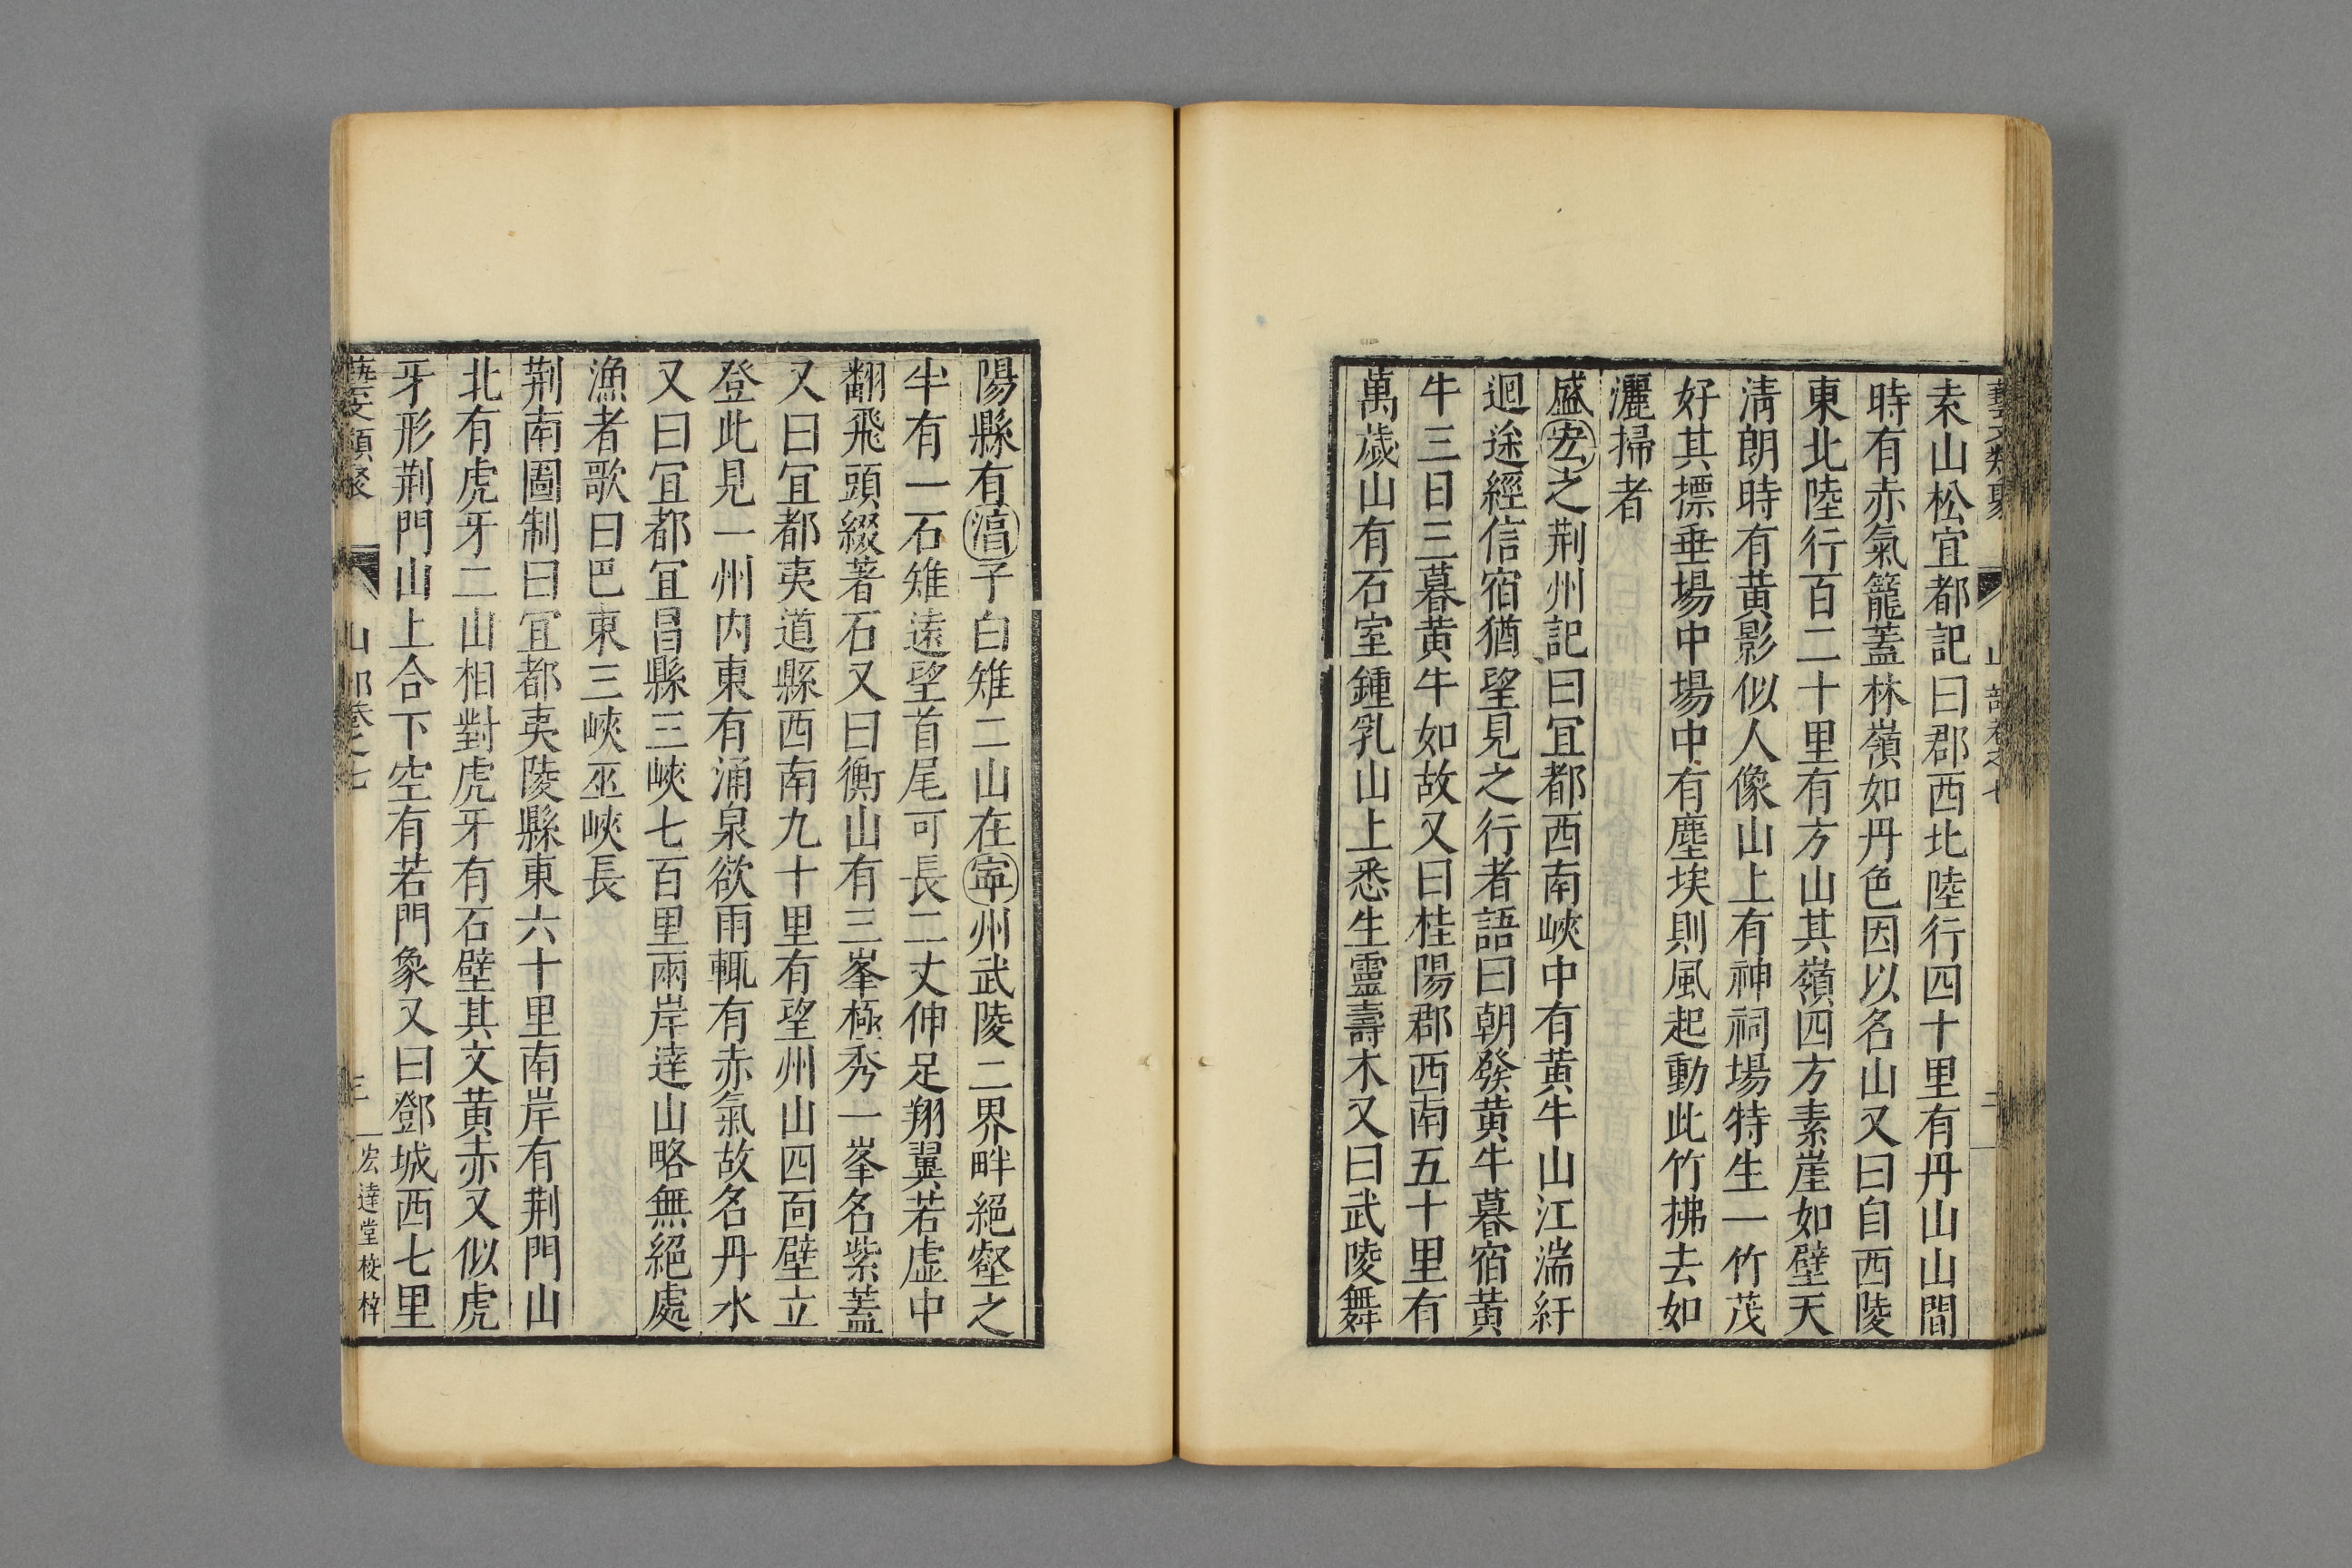 藝文類聚 山部卷之七 二
素山松宜都記曰郡西北陸行四十里有丹山山間
時有赤氣籠蓋林嶺如丹色因以名山又曰自西陵
東北陸行百二十里有方山其嶺四方素崖如壁天
清朗時有黃影似人像山上有神祠場特生一竹茂
好其摽垂場中場中有塵埃則風起動此竹拂去如
灑掃者
盛宏之荆州記曰宜都西南峽中有黃牛山江湍紆
迴途經信宿猶望見之行者語曰朝發黃牛暮宿黃
牛三日三暮黃牛如故又曰桂陽郡西南五十里有
萬歲山有石室鍾乳山上悉生靈壽木又曰武陵舞
陽縣有淯子白雉二山在寧州武陵二界畔絕壑之
半有一石雉遠望首尾可長二丈伸足翔翼若虛中
翻飛頭綴著石又曰衡山有三峯極秀一峯名紫蓋
又曰宜都夷道縣西南九十里有望州山四面壁立
登此見一州內東有涌泉欲雨輒有赤氣故名丹水
又曰宜都宜昌縣三峽七百里兩岸逹山略無絕處
漁者歌曰巴東三峽巫峽長
荆南圖制曰宜都夷陵縣東六十里南岸有荆門山
北有虎牙二山相對虎牙有石壁其文黃赤又似虎
牙形荆門山上合下空有若門象又曰鄧城西七里
藝文類聚 山部卷之七 三 宏逹堂校梓